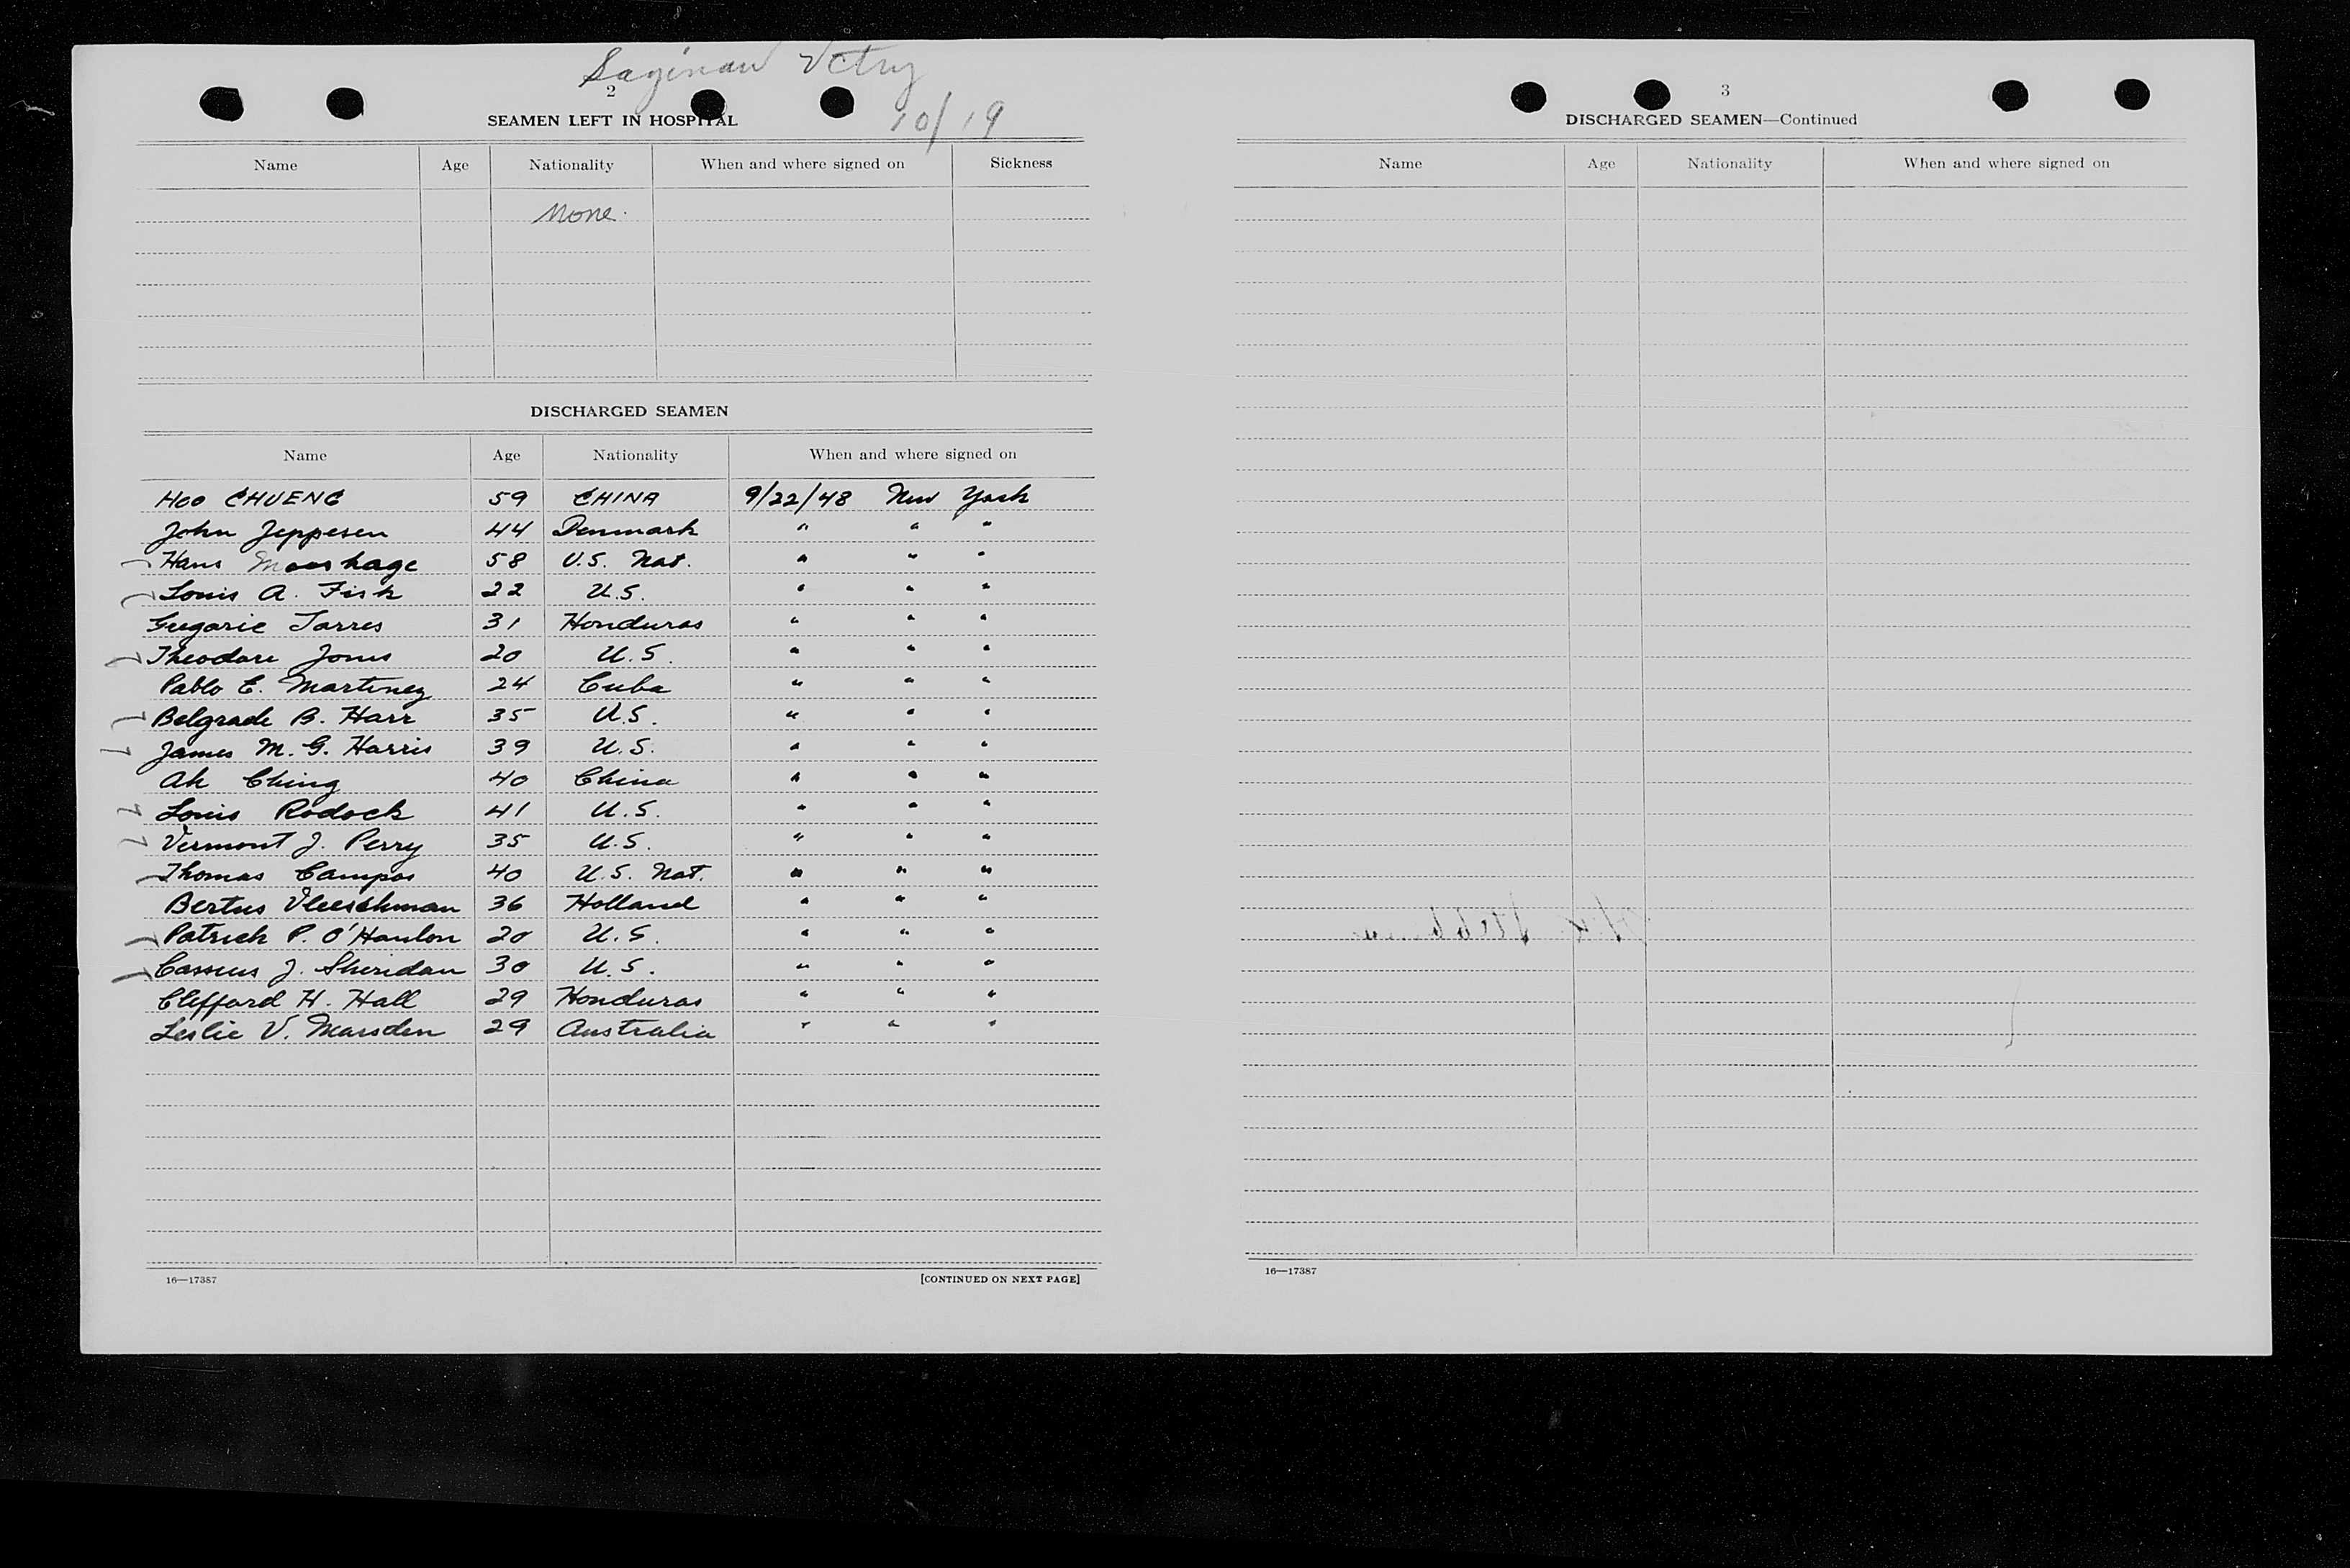 Saginaw Vctry
2
10/19
SEAMEN LEFT IN HOSPITAL
Name Age Nationality When and where signed on Sickness
None.
DISCHARGED SEAMEN
Name Age Nationality When and where signed on
HOO CHUENG 59 CHINA 9/22/48 New York
John Jeppesen 44 Denmark " " "
Hans Moorhage 58 U.S. Nat. " " "
Louis A. Fisk 22 U.S. " " "
Gregorie Torres 31 Honduras " " "
Theodore Jones 20 U.S. " " "
Pablo E. Martinez 24 Cuba " " "
Belgrade B. Harr 35 U.S. " " "
James M. G. Harris 39 U.S. " " "
Ah Ching 40 China " " "
Louis Rodock 41 U.S. " " "
Vermont J. Perry 35 U.S. " " "
Thomas Campos 40 U.S. Nat. " " "
Bertus Vleeschman 36 Holland " " "
Patrick P. O'Hanlon 20 U.S. " " "
Cassius J. Sheridan 30 U.S. " " "
Clifford H. Hall 29 Honduras " " "
Leslie V. Marsden 29 Australia " " "
16—17387 [CONTINUED ON NEXT PAGE]
3
DISCHARGED SEAMEN—Continued
Name Age Nationality When and where signed on
16—17387